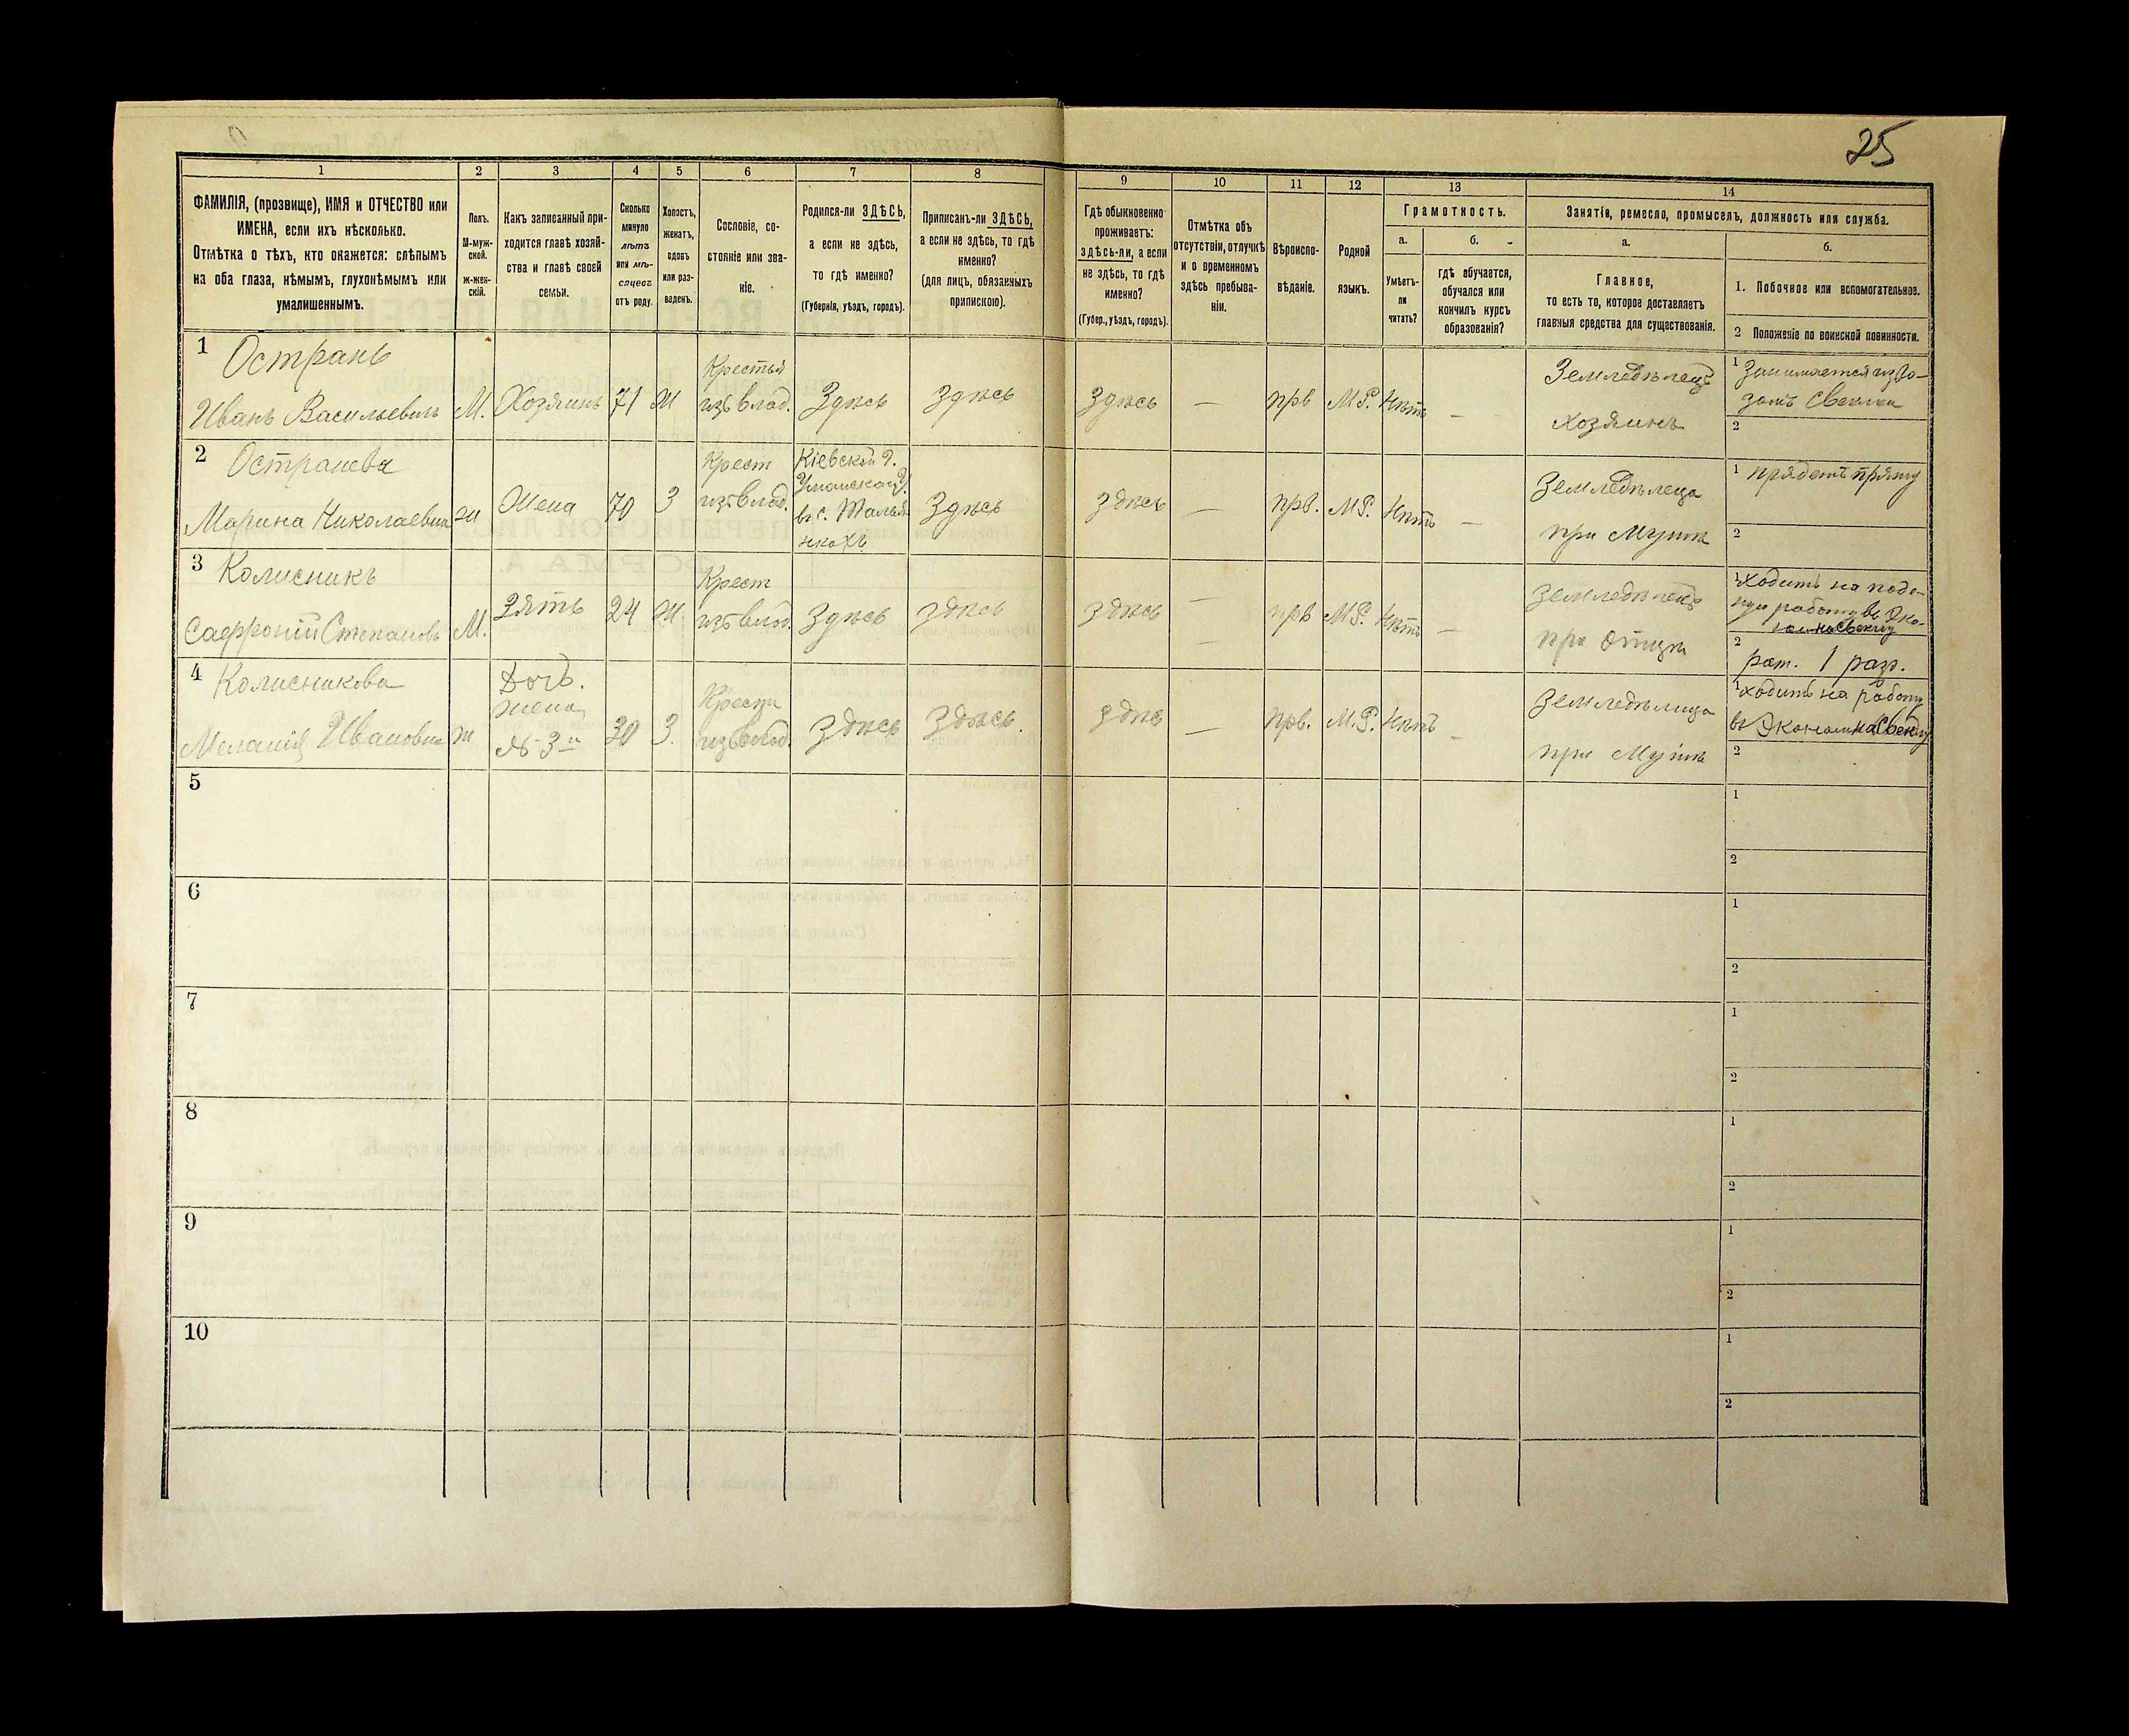 25
1
2
3
4
5
6
7
8
9
10
11
12
13
14
ФАМИЛІЯ, (прозвище), ИМЯ и ОТЧЕСТВО или
ИМЕНА, если ихъ нѣсколько.
Отмѣтка о тѣхъ, кто окажется: слѣпымъ
на оба глаза, нѣмымъ, глухонѣмымъ или
умалишеннымъ.
Полъ.
М-муж-
ской.
Ж-жен-
скій.
Какъ записанный при-
ходится главѣ хозяй-
ства и главѣ своей
семьи.
Сколько
минуло
лѣтъ
или мѣ-
сяцевъ
отъ роду.
Холостъ,
женатъ,
вдовъ
или раз-
веденъ.
Сословіе, со-
стояніе или зва-
ніе.
Родился-ли ЗДѢСЬ,
а если не здѣсь,
то гдѣ именно?
(Губернія, уѣздъ, городъ).
Приписанъ-ли ЗДѢСЬ,
а если не здѣсь, то гдѣ
именно?
(для лицъ, обязанныхъ
припискою).
Гдѣ обыкновенно
проживаетъ:
здѣсь-ли, а если
не здѣсь, то гдѣ
именно?
(Губер., уѣздъ, городъ).
Отмѣтка объ
отсутствіи, отлучкѣ
и о временномъ
здѣсь пребыва-
ніи.
Вѣроиспо-
вѣданіе.
Родной
языкъ.
Грамотность.
а.
Умѣетъ-
ли
читать?
б.
гдѣ обучается,
обучался или
кончилъ курсъ
образованія?
Занятіе, ремесло, промыселъ, должность или служба.
а.
Главное,
то есть то, которое доставляетъ
главныя средства для существованія.
б.
1. Побочное или вспомогательное.
2 Положеніе по воинской повинности.
1 Остранъ
Иванъ Васильевичъ
М.
Хозяинъ
71
Ж
Крестья
изъ влад.
Здѣсь
здѣсь
здѣсь
—
прв
М.Р.
Нѣтъ
—
Земледѣлецъ
хозяинъ
1 Занимается изво-
зомъ Свеклы
2
2 Остранева
Марина Николаевна
ж
Жена
70
З
Крест
изъ влад.
Кіевской г.
Уманскаго у.
въ с. Талья-
нкахъ
Здѣсь
здѣсь
—
прв.
М.Р.
Нѣтъ
—
Земледѣлица
при Мужѣ
1 прядетъ пряжу
2
3 Колисникъ
Сафроній Степановъ
М.
Зять
24
Ж
Крест
изъ влад.
Здѣсь
здѣсь
здѣсь
—
—
прв
М.Р.
Нѣтъ
—
Земледѣлецъ
при отцѣ
1 Ходитъ на поде-
ную работу въ Эко-
2 рат. 1 разр.
4 Колисникова
Меланія Ивановна
ж
Дочь.
жена
№ 3й
30
З.
Крестья
изъ влад.
Здѣсь
Здѣсь.
здѣсь
—
прв.
М.Р.
Нѣтъ
—
Земледѣлица
при Мужѣ
1 ходитъ на работу
2
5
1
2
6
1
2
7
1
2
8
1
2
9
1
2
10
1
2